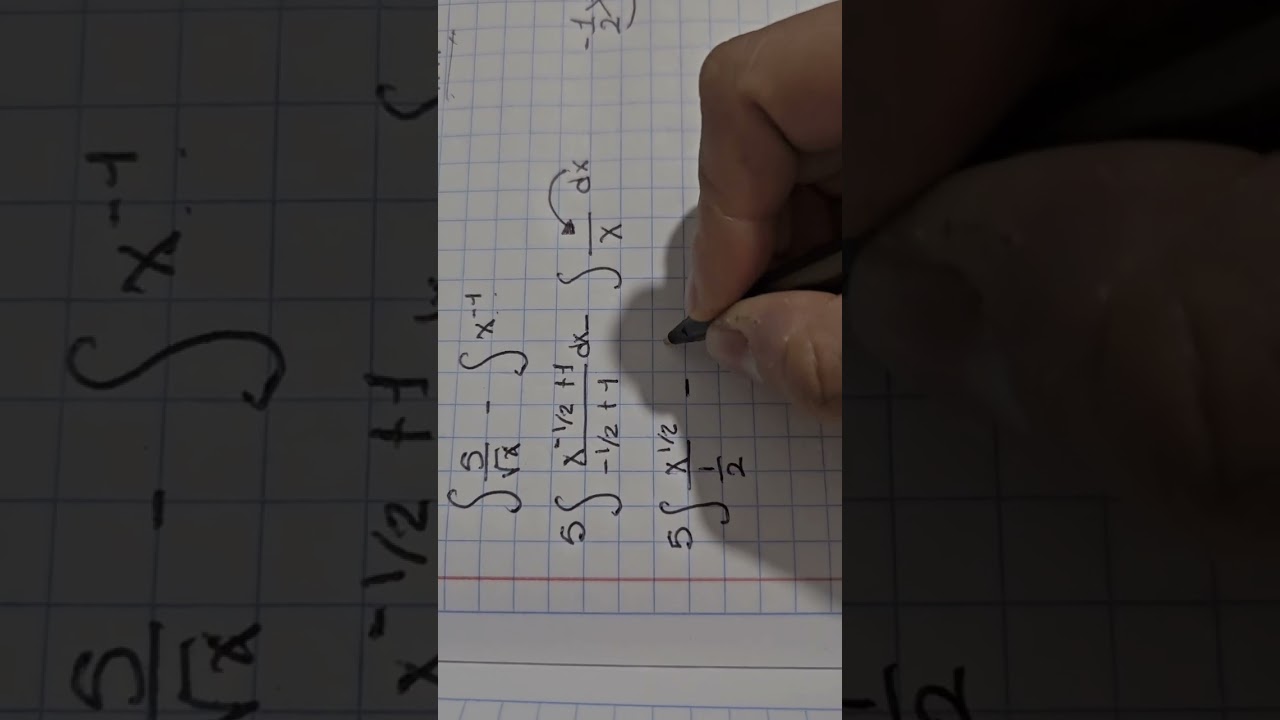 ∫ 5/√x - ∫ x⁻¹
5 ∫ x^(-1/2 + 1)/(-1/2 + 1) dx ∫ dx/x
5 ∫ x^(1/2)/(1/2) -
-1/2